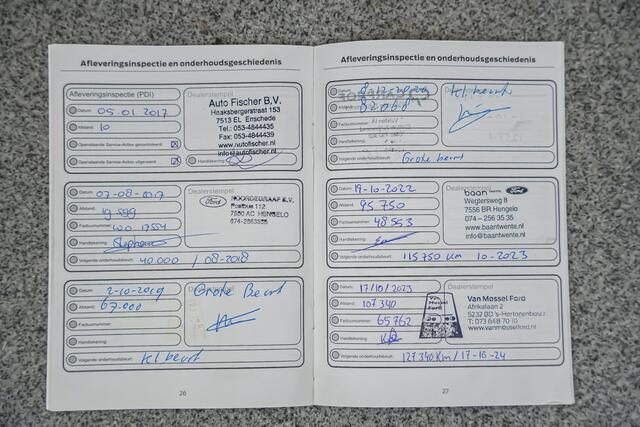 Afleveringsinspectie en onderhoudsgeschiedenis
Afleveringsinspectie (PDI)
Datum: 05.01.2017
Afstand: 10
Openstaande Service-Acties gecontroleerd: X
Openstaande Service-Acties uitgevoerd: X
Dealerstempel
Auto Fischer B.V.
Haaksbergerstraat 153
7513 EL Enschede
Tel.: 053-4844435
Fax: 053-4844439
www.autofischer.nl
info@autofischer.nl
Handtekening:
Datum: 07-08-2017
Afstand: 19.599
Factuurnummer: WO 17554
Handtekening:
Volgende onderhoudsbeurt: 40.000 / 08-2018
Dealerstempel
Ford
NOORDEGRAAF B.V.
Postbus 112
7550 AC HENGELO
Datum: 2-10-2019
Afstand: 67.000
Factuurnummer:
Handtekening:
Volgende onderhoudsbeurt: Kl beurt
Dealerstempel
Grote Beurt
26
Afleveringsinspectie en onderhoudsgeschiedenis
Datum:
Afstand: 82068
Factuurnummer:
Handtekening:
Volgende onderhoudsbeurt: Grote beurt
Dealerstempel
Kl. beurt
Datum: 19-10-2022
Afstand: 95 750
Factuurnummer: 48553
Handtekening:
Volgende onderhoudsbeurt: 115 750 Km 10-2023
Dealerstempel
baan twente Ford
Wegtersweg 8
7556 BR Hengelo
074 - 256 35 35
www.baantwente.nl
info@baantwente.nl
Datum: 17/10/2023
Afstand: 107 340
Factuurnummer: 65762
Handtekening:
Volgende onderhoudsbeurt: 127 340 Km / 17-10-24
Dealerstempel
Van Mossel Ford
Van Mossel Ford
Afrikalaan 2
5232 BD 's-Hertogenbosch
T: 073 648 70 10
www.vanmosselford.nl
27